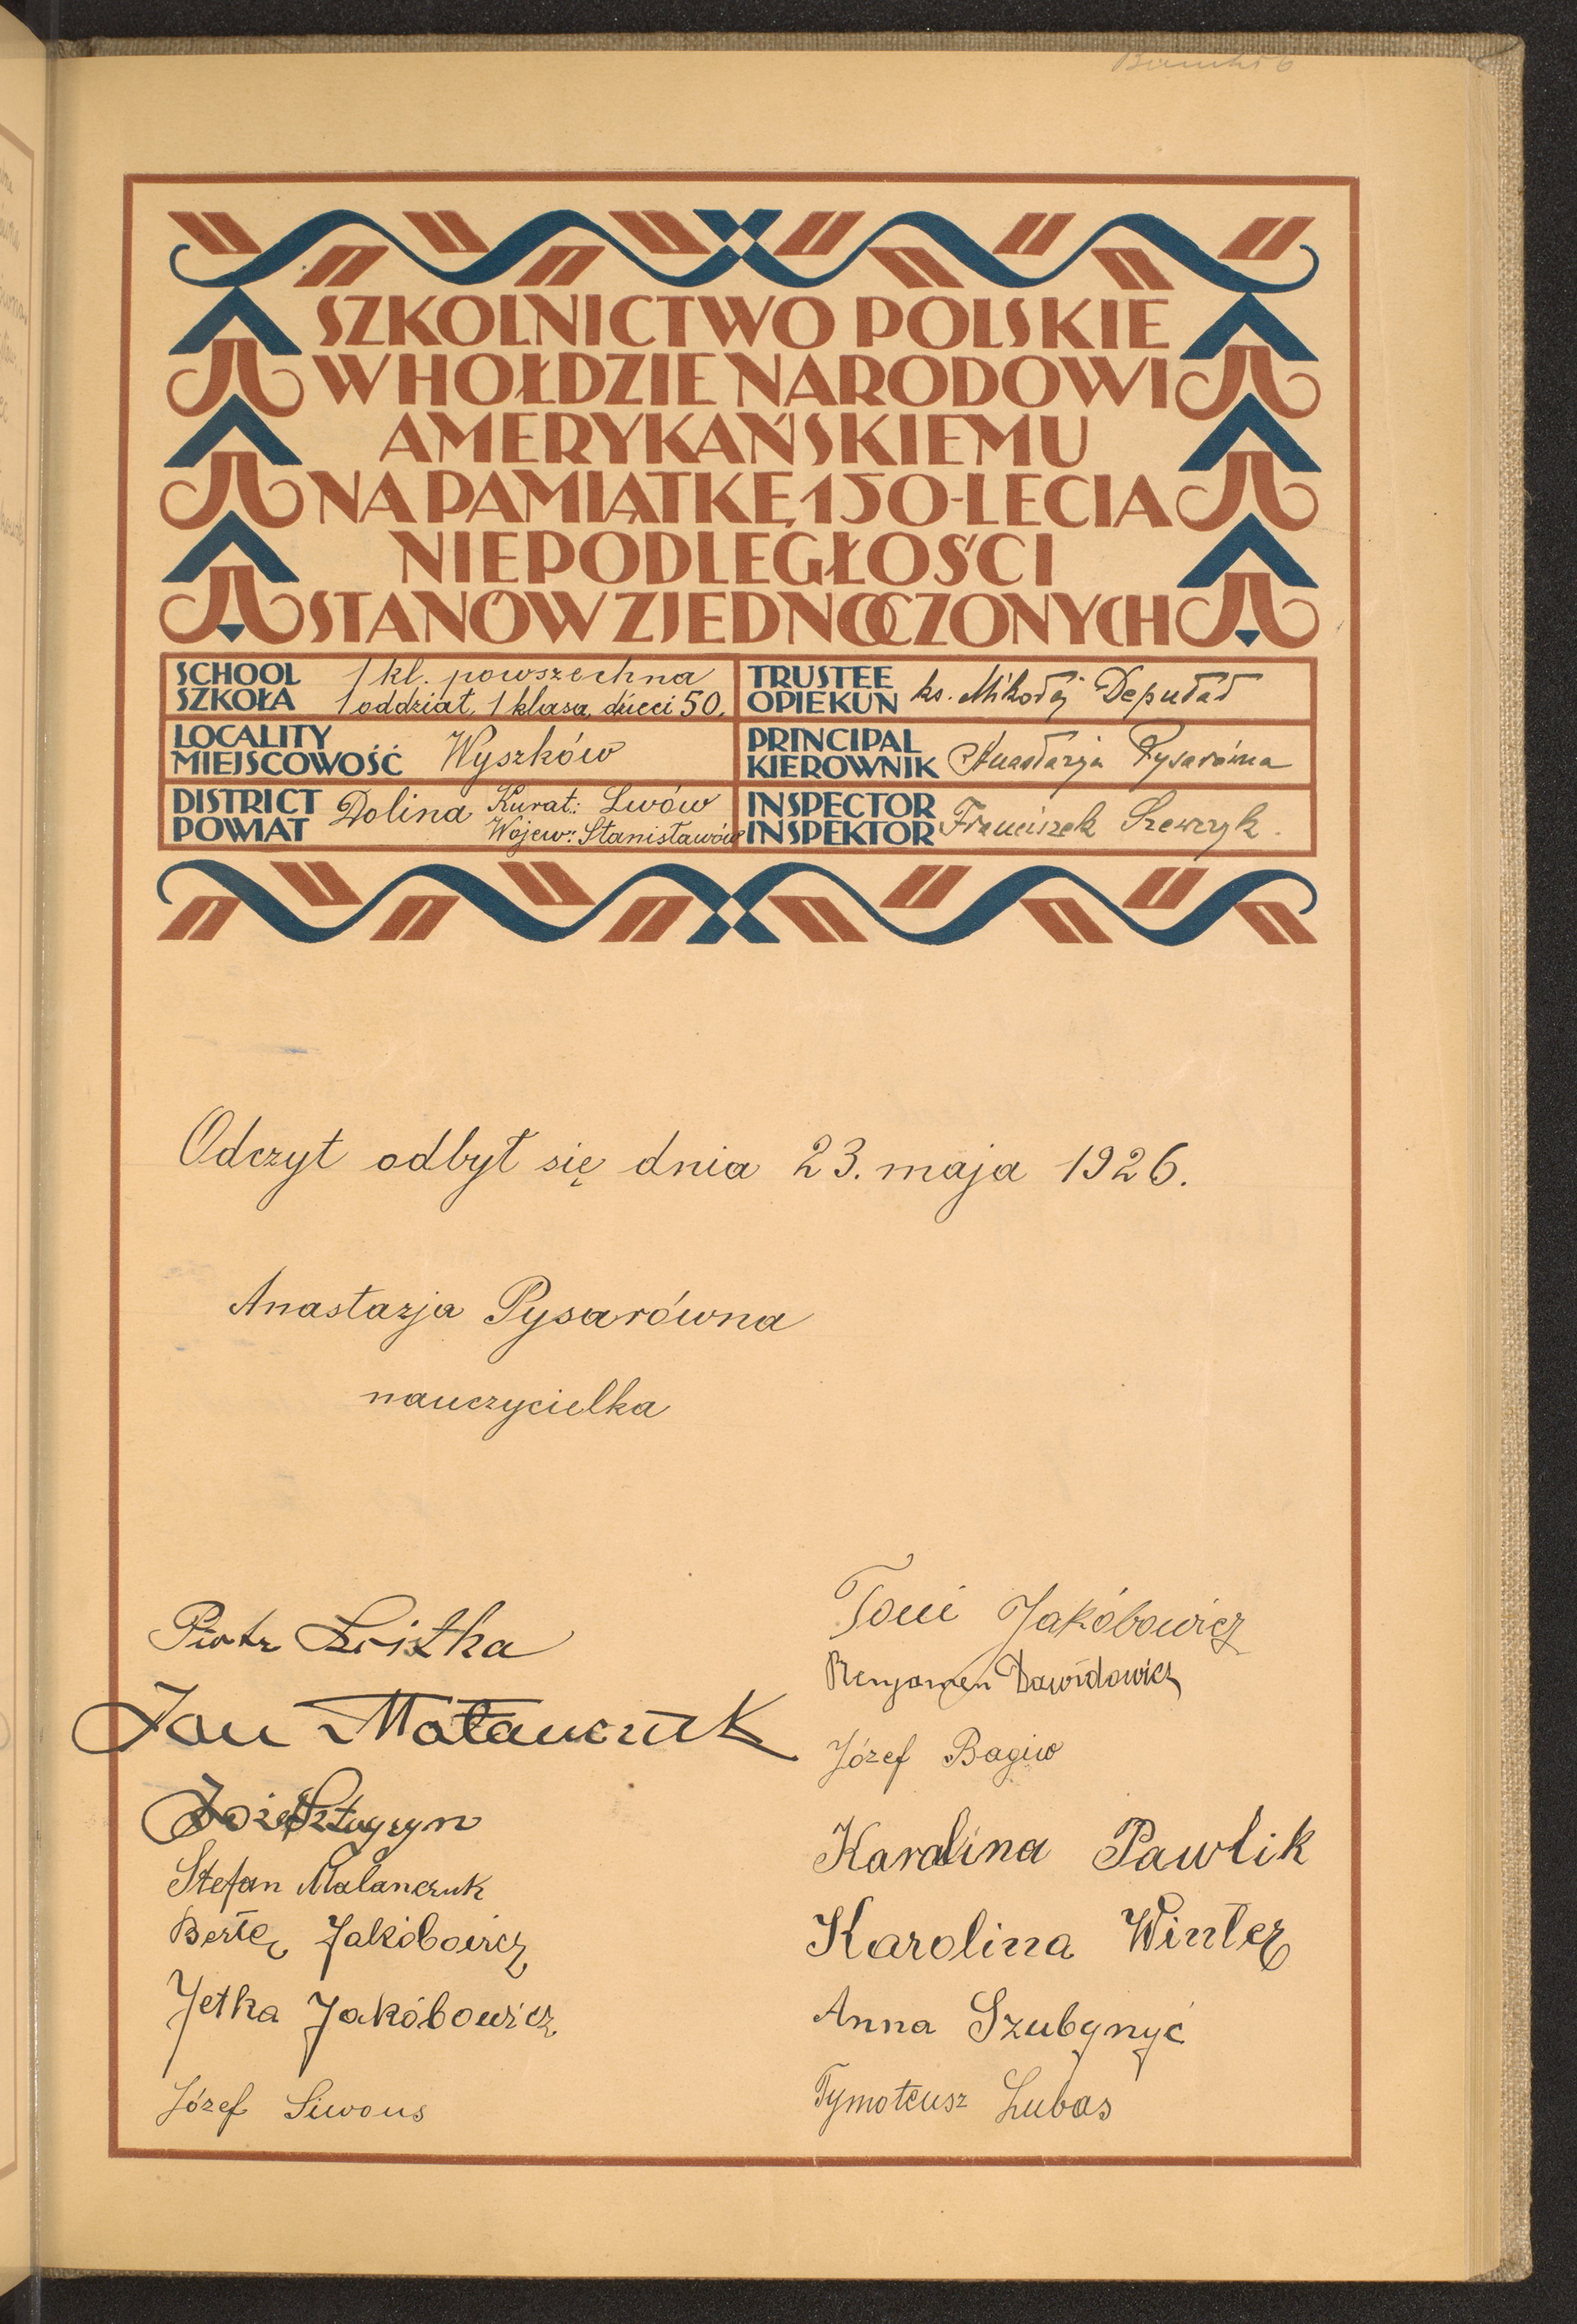 SZKOLNICTWO POLSKIE
W HOŁDZIE NARODOWI
AMERYKAŃSKIEMU
NA PAMIĄTKĘ 150-LECIA
NIEPODLEGŁOŚCI
STANÓW ZJEDNOCZONYCH
SCHOOL
SZKOŁA
1 kl. powszechna
1 oddział, 1 klasa, dzieci 50.
TRUSTEE
OPIEKUN
ks. Mikołaj Deputat
LOCALITY
MIEJSCOWOŚĆ
Wyszków
PRINCIPAL
KIEROWNIK
Anastazja Pysarówna
DISTRICT
POWIAT
Dolina
Kurat: Lwów
Wojew: Stanisławów
INSPECTOR
INSPEKTOR
Franciszek Szewczyk.
Odczyt odbył się dnia 23. maja 1926.
Anastazja Pysarówna
nauczycielka
Piotr
Jan Małanczuk
Józef
Stefan Malanczuk
Berta Jakóbowicz
Jetka Jakóbowicz
Józef Siwous
Toni Jakóbowicz
Benjamen Dawidowicz
Józef Bagiw
Karolina Pawlik
Karolina Winter
Anna Szubynyć
Tymoteusz Lubas